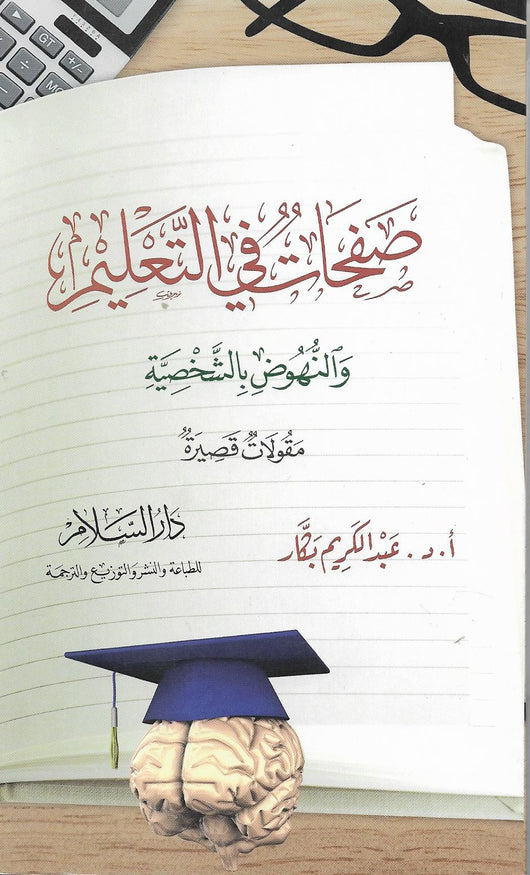 GT
+/-
صَفَحَاتٌ في التَّعْلِيمِ
وَالنُّهُوضِ بِالشَّخْصِيَّةِ
مَقُولَاتٌ قَصِيرَةٌ
أ. د. عَبْدالكَرِيم بَكَّار
دَارُ السَّلَامِ
للطباعة والنشر والتوزيع والترجمة